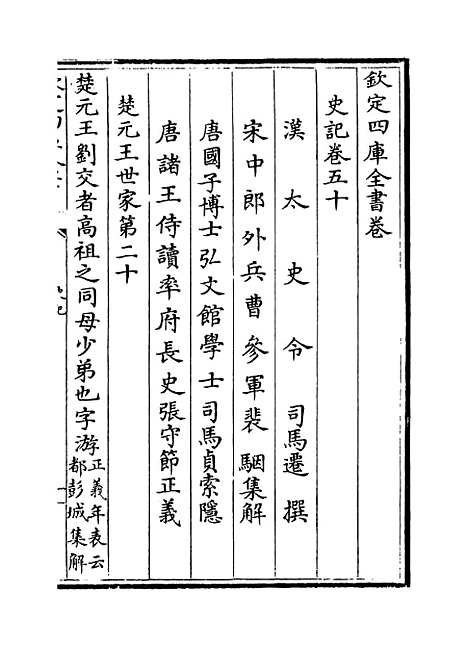 欽定四庫全書卷
史記卷五十
漢太史令司馬遷撰
宋中郎外兵曹參軍裴駰集解
唐國子博士弘文館學士司馬貞索隱
唐諸王侍讀率府長史張守節正義
楚元王世家第二十
楚元王劉交者高祖之同母少弟也字游正義年表云都彭城集解
史記